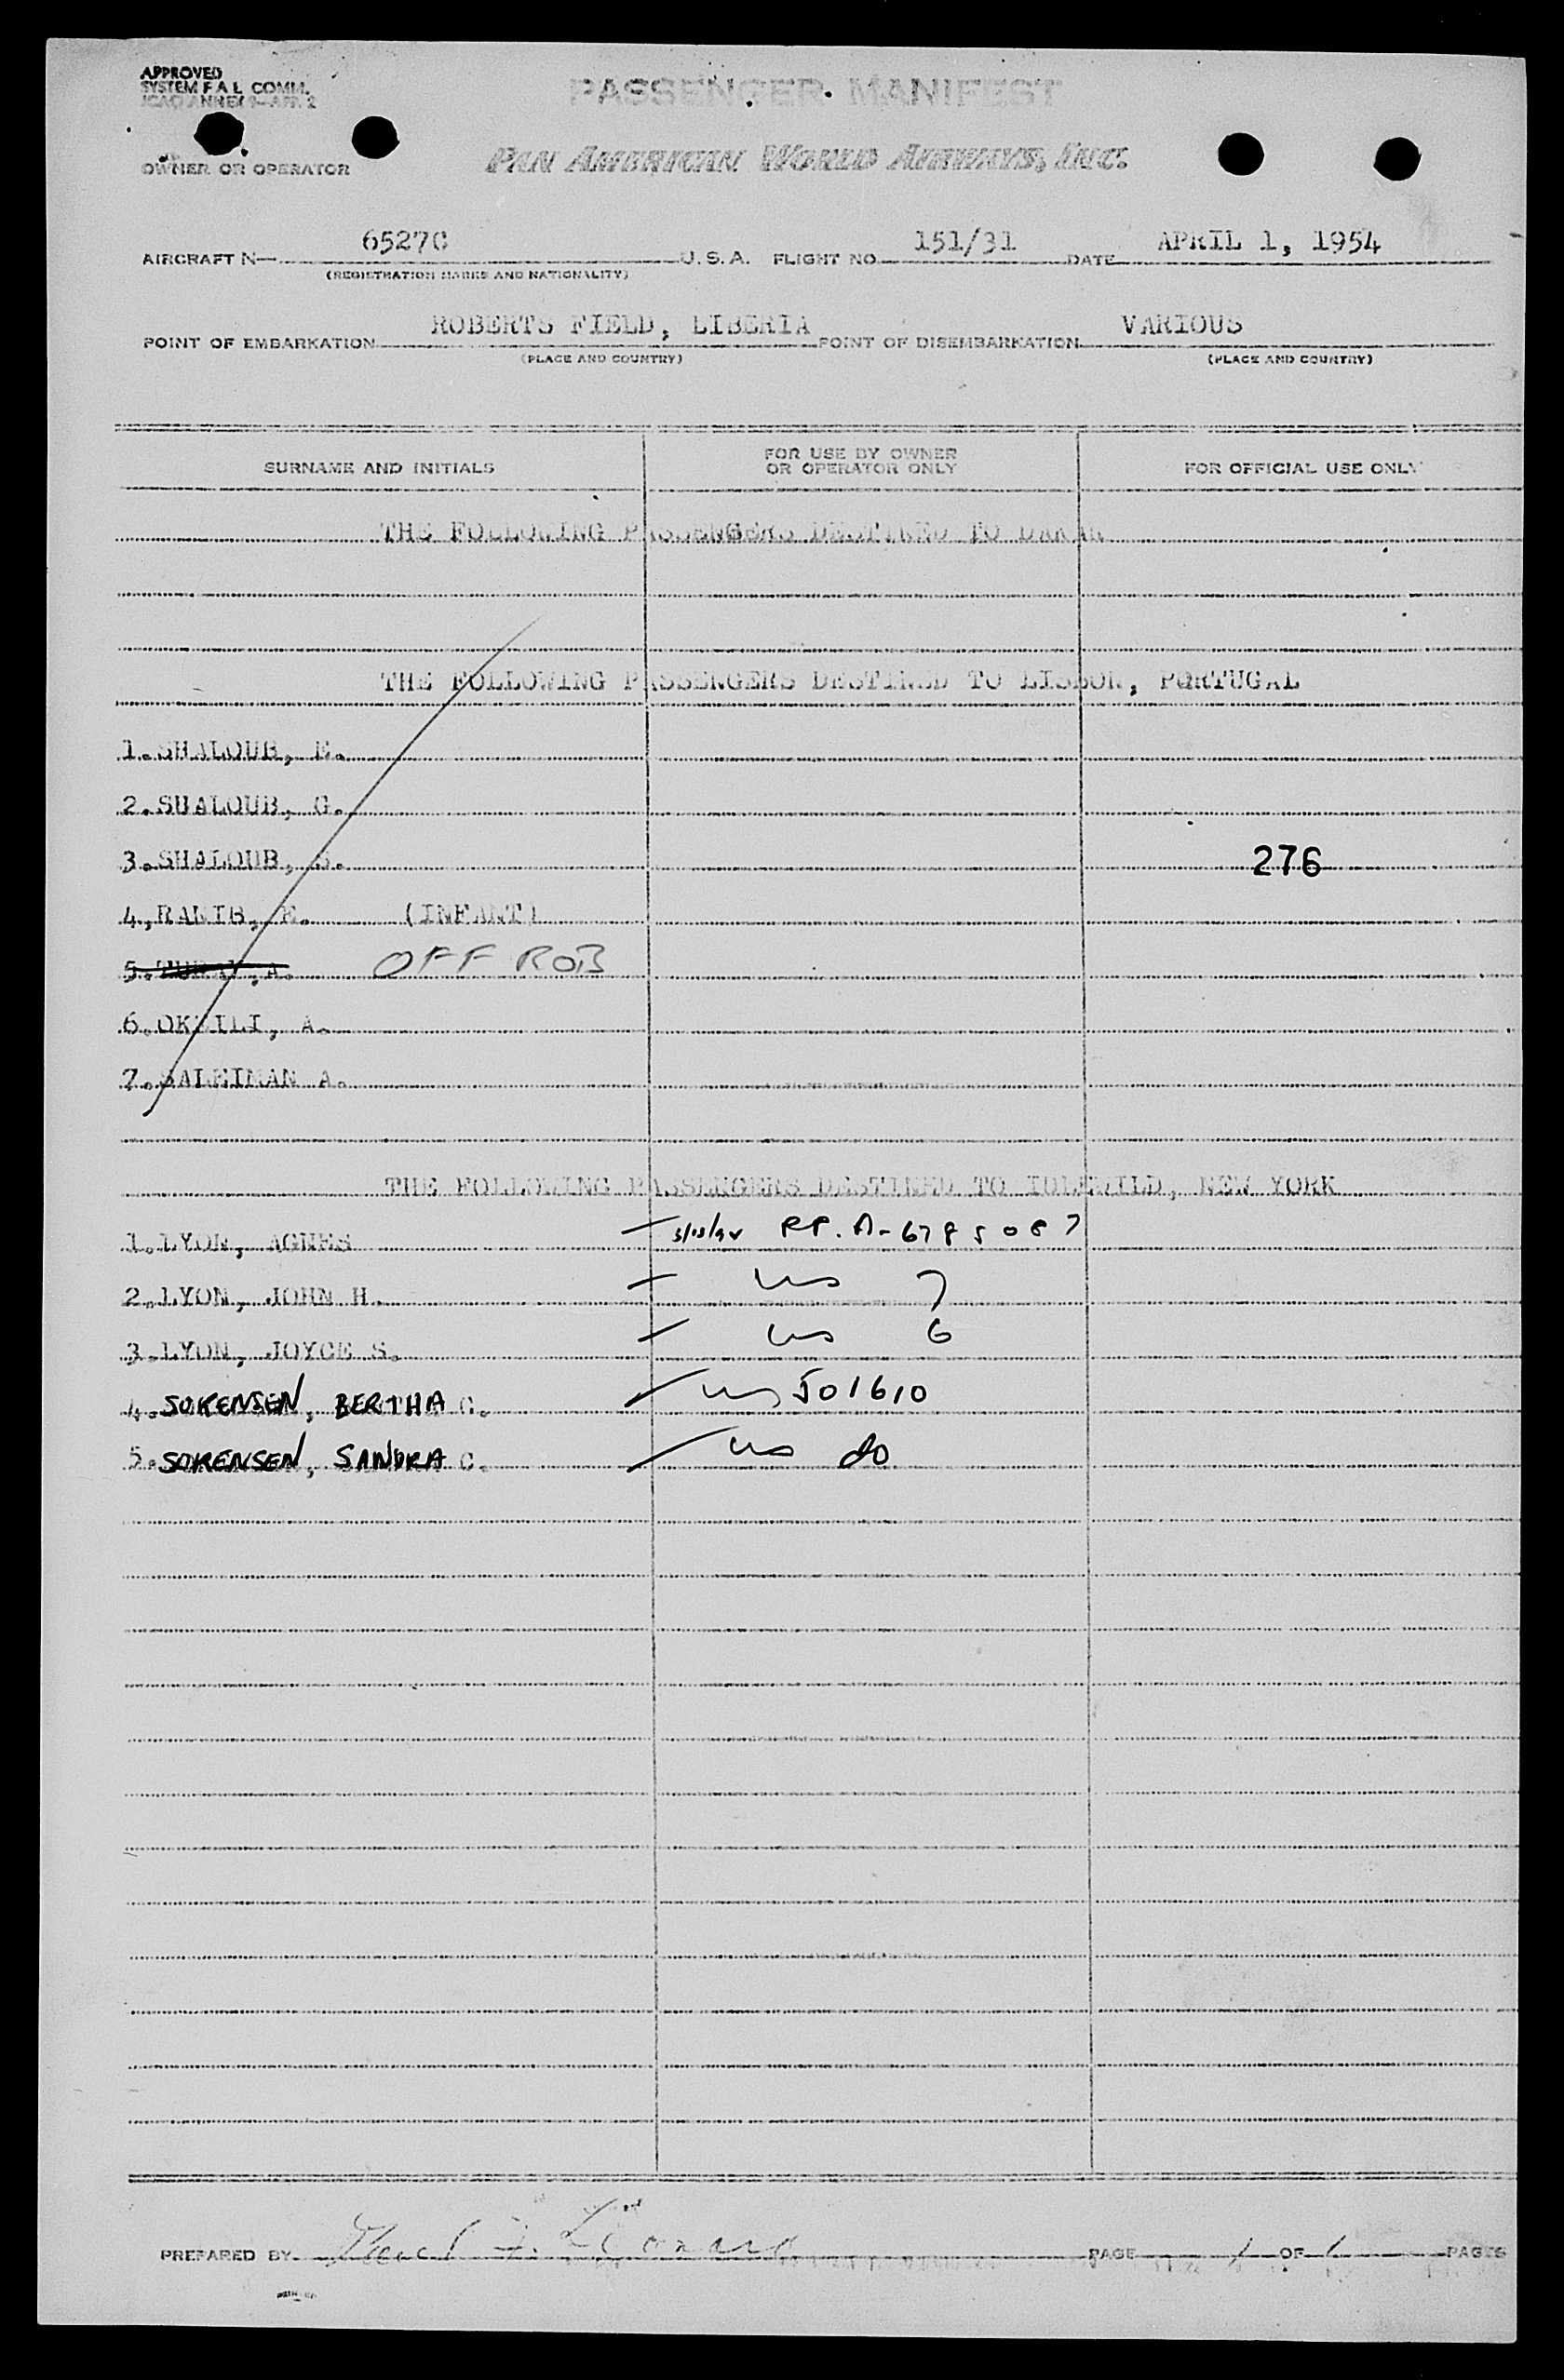 APPROVED
SYSTEM F A L COMM.
ICAO ANNEX 9—APP. 2
PASSENGER MANIFEST
OWNER OR OPERATOR
PAN AMERICAN WORLD AIRWAYS, INC.
AIRCRAFT N— 6527C U. S. A. FLIGHT NO. 151/31 DATE APRIL 1, 1954
(REGISTRATION MARKS AND NATIONALITY)
POINT OF EMBARKATION ROBERTS FIELD, LIBERIA POINT OF DISEMBARKATION VARIOUS
(PLACE AND COUNTRY) (PLACE AND COUNTRY)
SURNAME AND INITIALS FOR USE BY OWNER OR OPERATOR ONLY FOR OFFICIAL USE ONLY
THE FOLLOWING PASSENGERS DESTINED TO DAKAR
THE FOLLOWING PASSENGERS DESTINED TO LISBON, PORTUGAL
1. SHALOUB, E.
2. SHALOUB, G.
3. SHALOUB, S. 276
4, RAMIB, E. (INFANT)
5. A. OFF ROB
6. A.
7. SALEIMAN A.
THE FOLLOWING PASSENGERS DESTINED TO IDLEWILD, NEW YORK
1. LYON, AGNES PP. A-6785087
2. LYON, JOHN H. us 7
3. LYON, JOYCE S. us 6
4. SORENSEN, BERTHA C. us 501610
5. SORENSEN, SANDRA C. us do
PREPARED BY PAGE 1 OF 1 PAGES